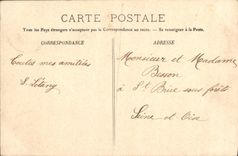 CARTE POSTALE
Tous les Pays étrangers n'acceptent pas la Correspondance au recto. — Se renseigner à la Poste.
CORRESPONDANCE
Toutes mes amitiés
S. Létang
ADRESSE
Monsieur et Madame
Besson
à St Brice sous forêt
Seine et Oise